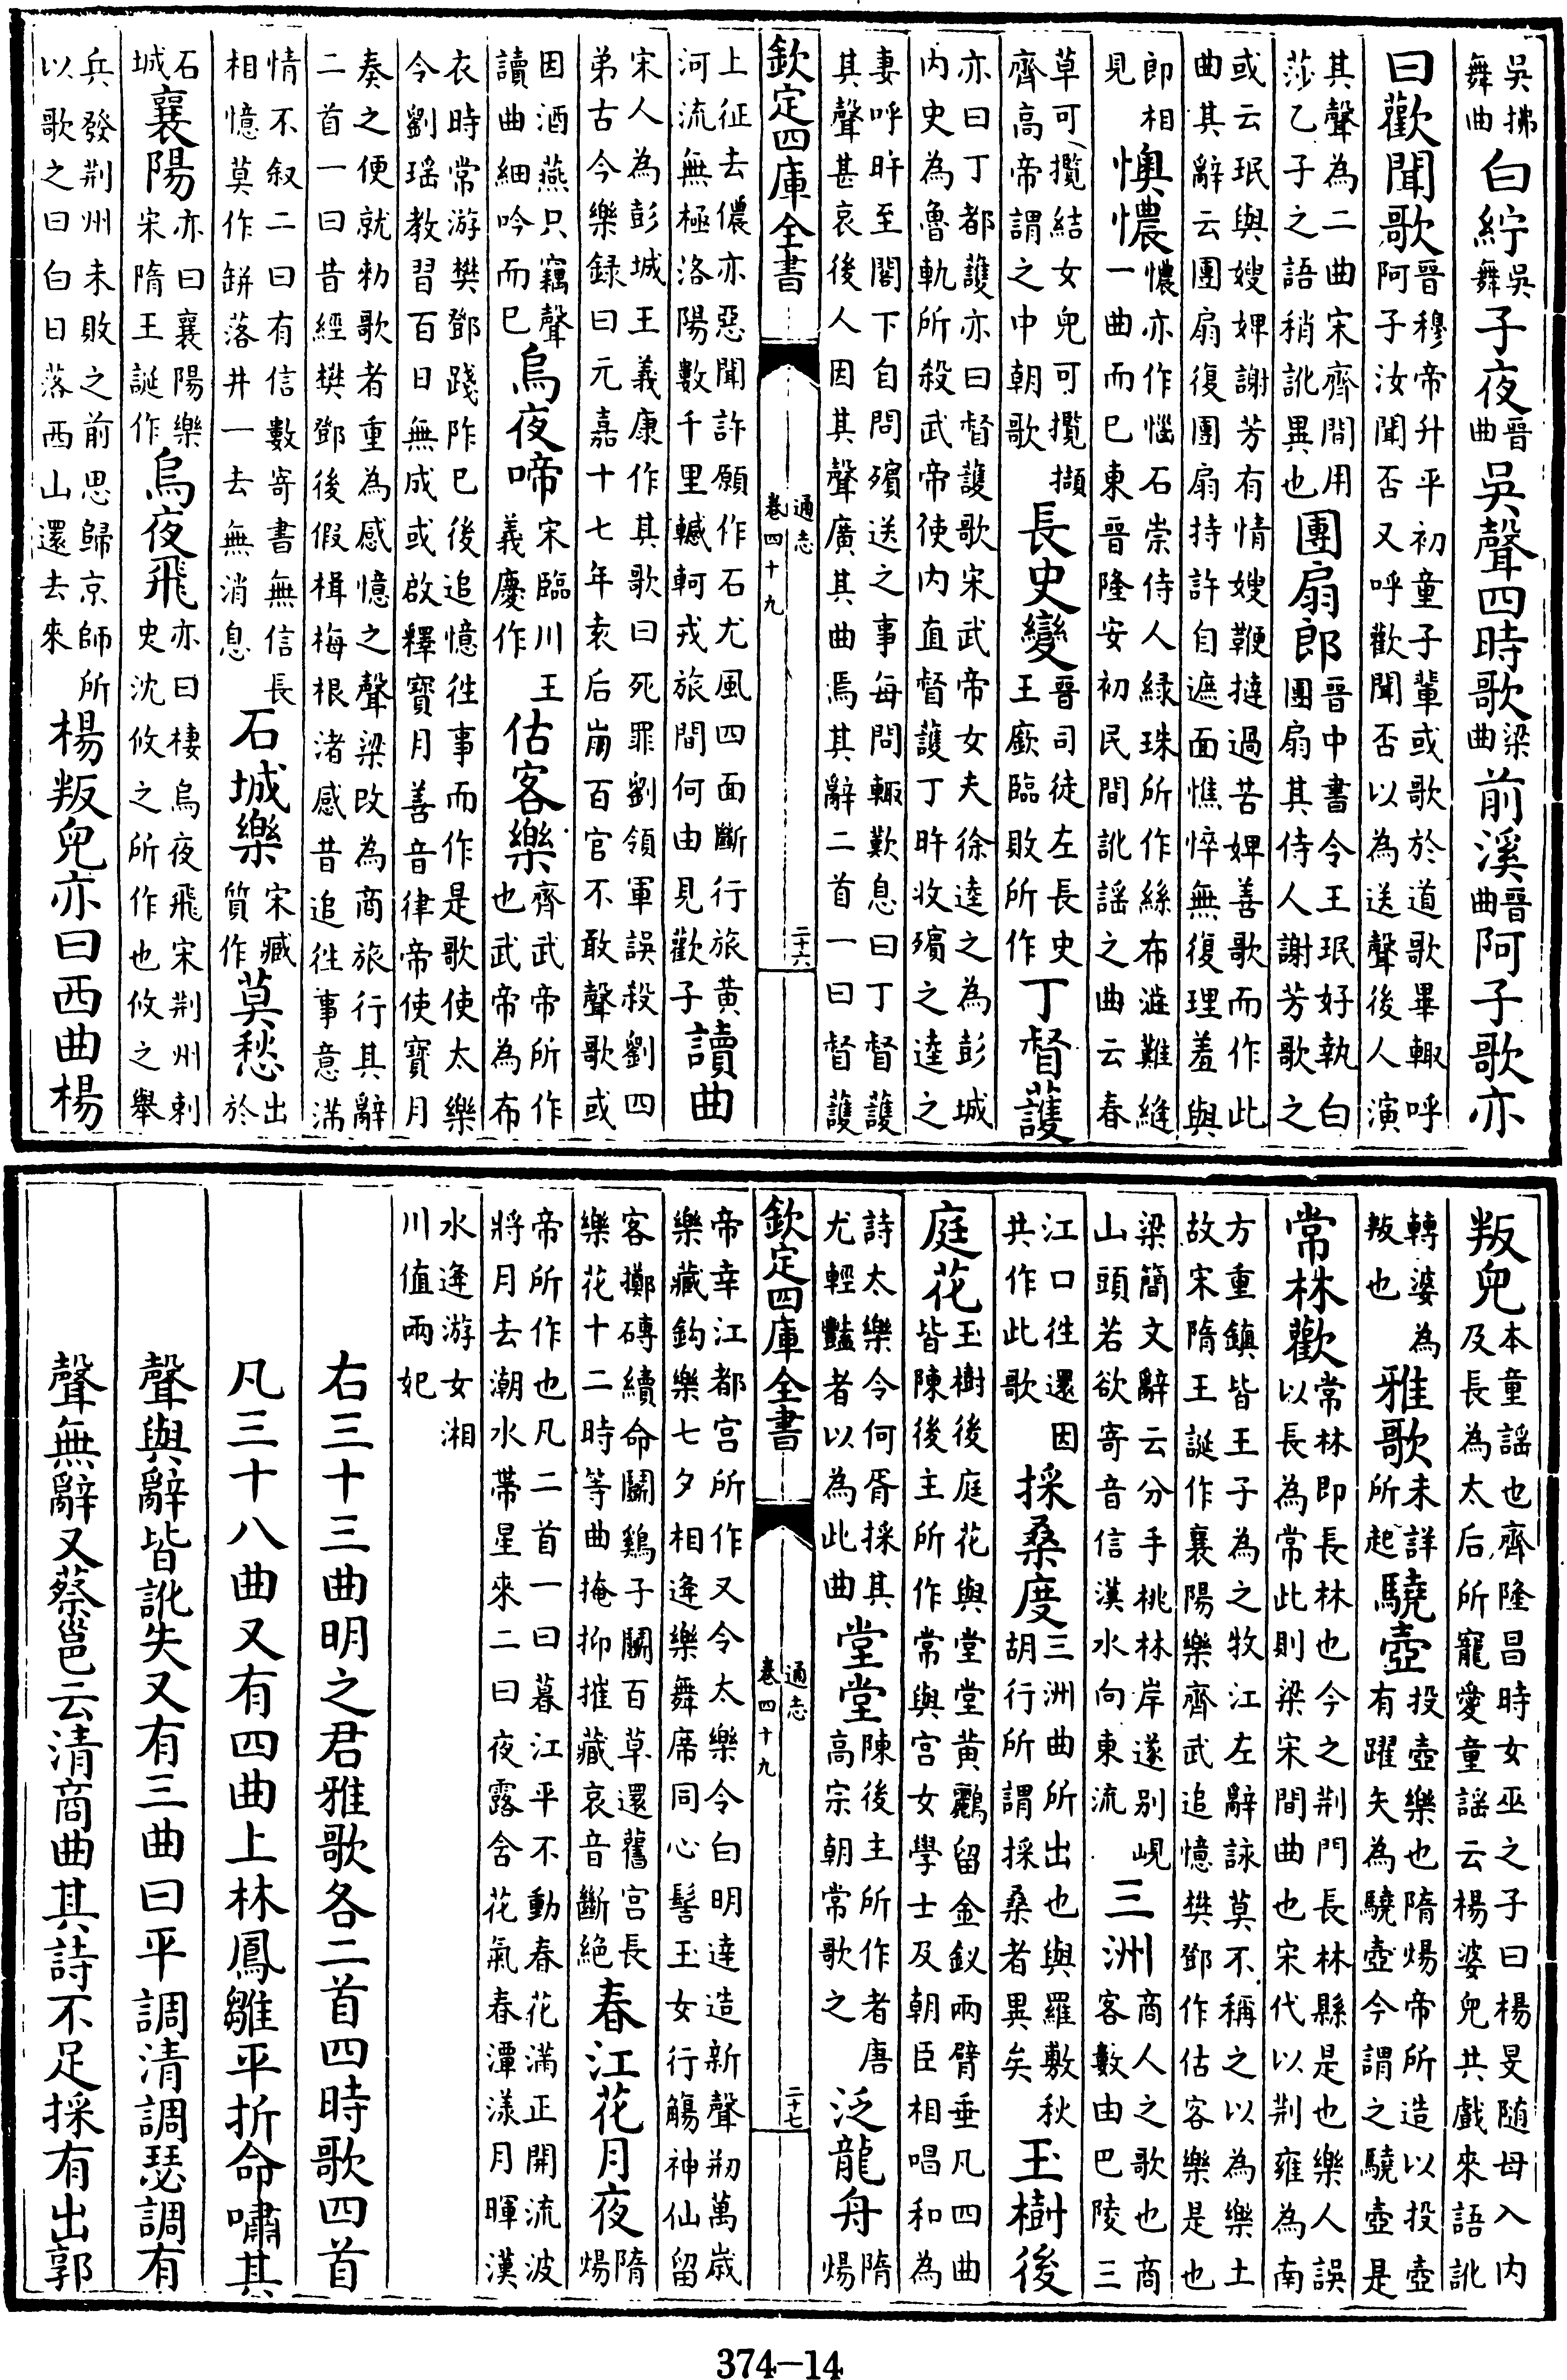 吳拂舞曲白紵吳舞子夜晉曲吳聲四時歌梁曲前溪晉曲阿子歌亦
曰歡聞歌晉穆帝升平初童子輩或歌於道歌畢輙呼阿子汝聞否又呼歡聞否以為送聲後人演
其聲為二曲宋齊間用莎乙子之語稍訛異也團扇郎晉中書令王珉好執白團扇其侍人謝芳歌之
或云珉與嫂婢謝芳有情嫂鞭撻過苦婢善歌而作此曲其辭云團扇復團扇持許自遮面憔悴無復理羞與
郎相見懊憹憹亦作惱石崇侍人緑珠所作絲布澁難縫一曲而已東晉隆安初民間訛謡之曲云春
草可攬結女兒可攬擷齊高帝謂之中朝歌長史變晉司徒左長史王廞臨敗所作丁督護
亦曰丁都護亦曰督護歌宋武帝女夫徐逵之為彭城内史為魯軌所殺武帝使内直督護丁旿收殯之逵之
妻呼旿至閣下自問殯送之事每問輙歎息曰丁督護其聲甚哀後人因其聲廣其曲焉其辭二首一曰督護
欽定四庫全書 通志 卷四十九 二十六
上征去儂亦惡聞許願作石尤風四面斷行旅黄河流無極洛陽數千里轗軻戎旅間何由見歡子讀曲
宋人為彭城王義康作其歌曰死罪劉領軍誤殺劉四弟古今樂録曰元嘉十七年袁后崩百官不敢聲歌或
因酒燕只竊聲讀曲細吟而已烏夜啼宋臨川王義慶作估客樂齊武帝所作也武帝為布
衣時常游樊鄧踐阼已後追憶徃事而作是歌使太樂今劉瑶教習百日無成或啟釋寳月善音律帝使寳月
奏之便就勑歌者重為感憶之聲梁改為商旅行其辭二首一曰昔經樊鄧後假楫梅根渚感昔追徃事意滿
情不叙二曰有信數寄書無信長相憶莫作缾落井一去無消息石城樂宋臧質作莫愁出於
石城襄陽亦曰襄陽樂宋隋王誕作烏夜飛亦曰棲烏夜飛宋荆州刺史沈攸之所作也攸之舉
兵發荆州未敗之前思歸京師所以歌之曰白日落西山還去來楊叛兒亦曰西曲楊
叛兒本童謡也齊隆昌時女巫之子曰楊旻随母入内及長為太后所寵愛童謡云楊婆兒共戲來語訛
轉婆為叛也雅歌未詳所起驍壺投壺樂也隋煬帝所造以投壺有躍矢為驍壺今謂之驍壺是
常林歡常林即長林也今之荆門長林縣是也樂人誤以長為常此則梁宋間曲也宋代以荆雍為南
方重鎮皆王子為之牧江左辭詠莫不稱之以為樂土故宋隋王誕作襄陽樂齊武追憶樊鄧作估客樂是也
梁簡文辭云分手桃林岸遂别峴山頭若欲寄音信漢水向東流三洲商人之歌也商客數由巴陵三
江口徃還因共作此歌採桑度三洲曲所出也與羅敷秋胡行所謂採桑者異矣玉樹後
庭花玉樹後庭花與堂堂黄鸝留金釵兩臂垂凡四曲皆陳後主所作常與宫女學士及朝臣相唱和為
詩太樂令何胥採其尤輕豔者以為此曲堂堂陳後主所作者唐高宗朝常歌之泛龍舟隋煬
欽定四庫全書 通志 卷四十九 二十七
帝幸江都宫所作又令太樂令白明逹造新聲刱萬嵗樂藏鈎樂七夕相逢樂舞席同心髻玉女行觴神仙留
客擲磚續命鬭鷄子鬭百草還舊宫長樂花十二時等曲掩抑摧藏哀音斷絶春江花月夜隋煬
帝所作也凡二首一曰暮江平不動春花滿正開流波將月去潮水帯星來二曰夜露含花氣春潭漾月暉漢
水逢游女湘川值兩妃
右三十三曲明之君雅歌各二首四時歌四首
凡三十八曲又有四曲上林鳳雛平折命嘯其
聲與辭皆訛失又有三曲曰平調清調瑟調有
聲無辭又蔡邕云清商曲其詩不足採有出郭
374-14